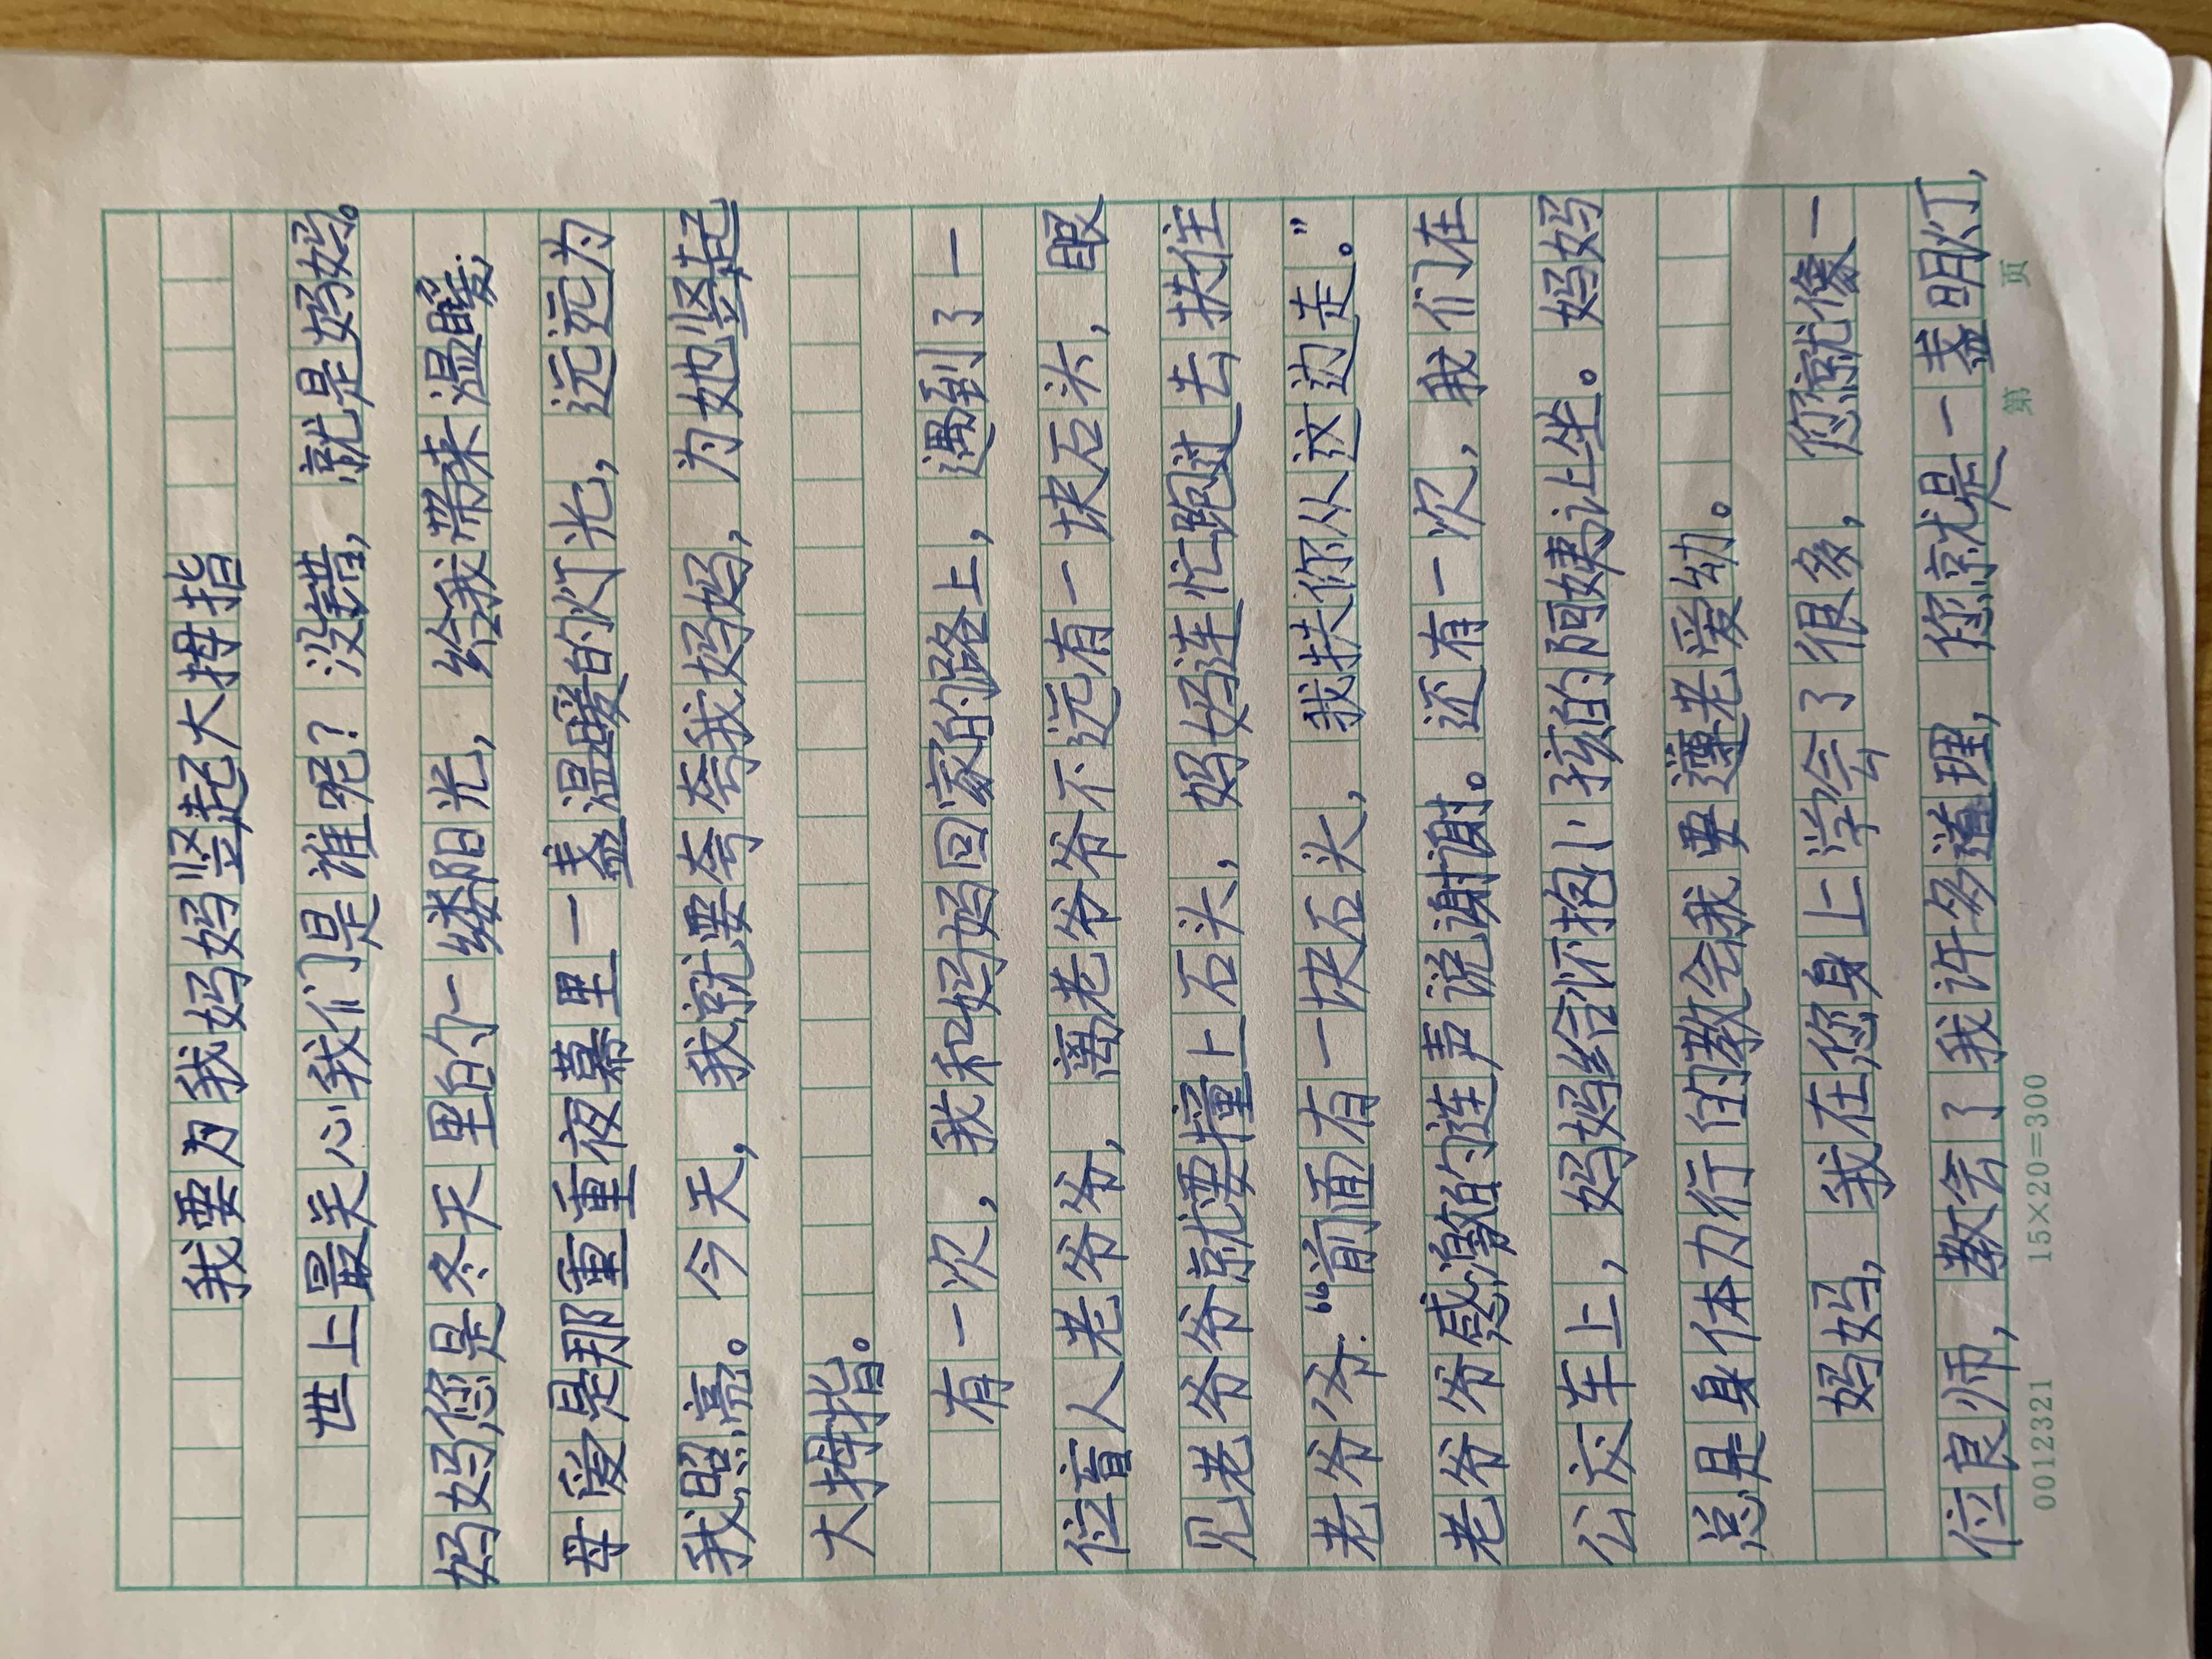 我要为我妈妈竖起大拇指
世上最关心我们是谁呢？没错，就是妈妈。
妈妈您是冬天里的一缕阳光，给我带来温暖；
母爱是那重重夜幕里一盏温暖的灯光，远远为
我照亮。今天，我就要夸夸我妈妈，为她竖起
大拇指。
有一次，我和妈妈回家的路上，遇到了一
位盲人老爷爷，离老爷爷不远有一块石头，眼
见老爷爷就要撞上石头，妈妈连忙跑过去扶住
老爷爷：“前面有一块石头，我扶你从这边走。”
老爷爷感激的连声说谢谢。还有一次，我们在
公交车上，妈妈给怀抱小孩的阿姨让坐。妈妈
总是身体力行的教会我要遵老爱幼。
妈妈，我在您身上学会了很多，您就像一
位良师，教会了我许多道理，您就是一盏明灯，
0012321 15×20=300 第 页